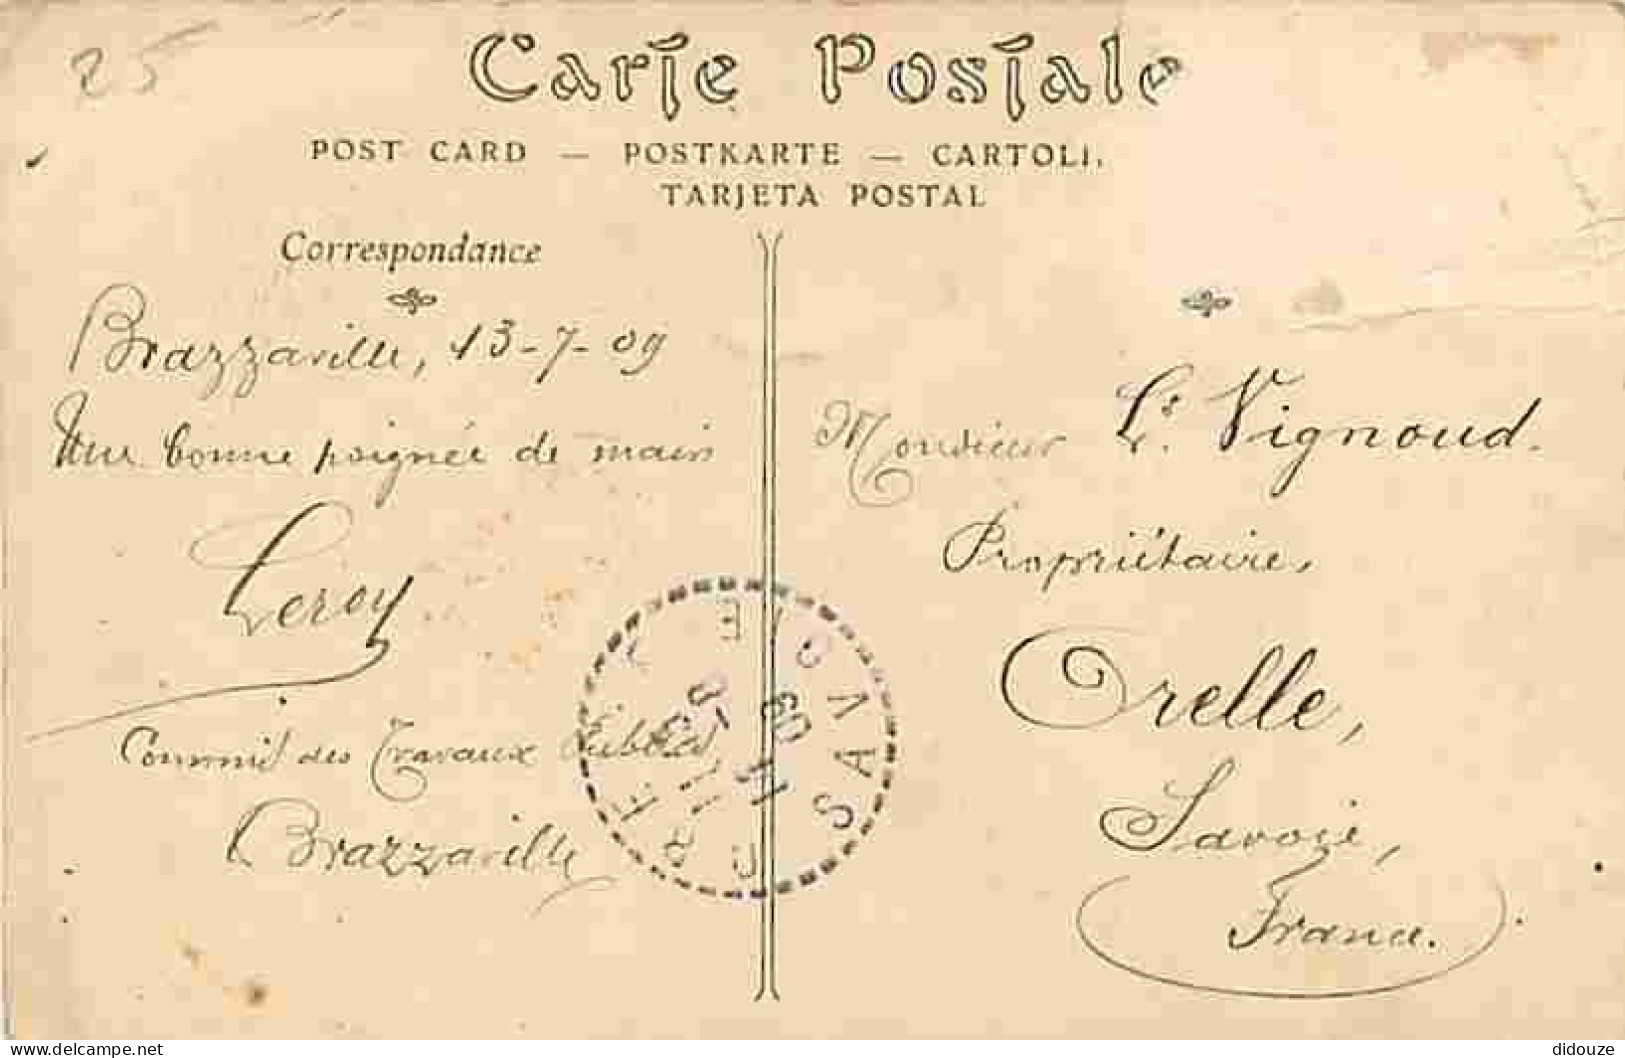 25
Carte Postale
POST CARD — POSTKARTE — CARTOLI
TARJETA POSTAL
Correspondance
Brazzaville, 13-7-09
Une bonne poignée de main
Leroy
Commis des Travaux Publics
Brazzaville
Monsieur Ls. Vignoud.
Propriétaire,
Orelle,
Savoie,
France.
09
SAV
https://www.delcampe.net
didouze